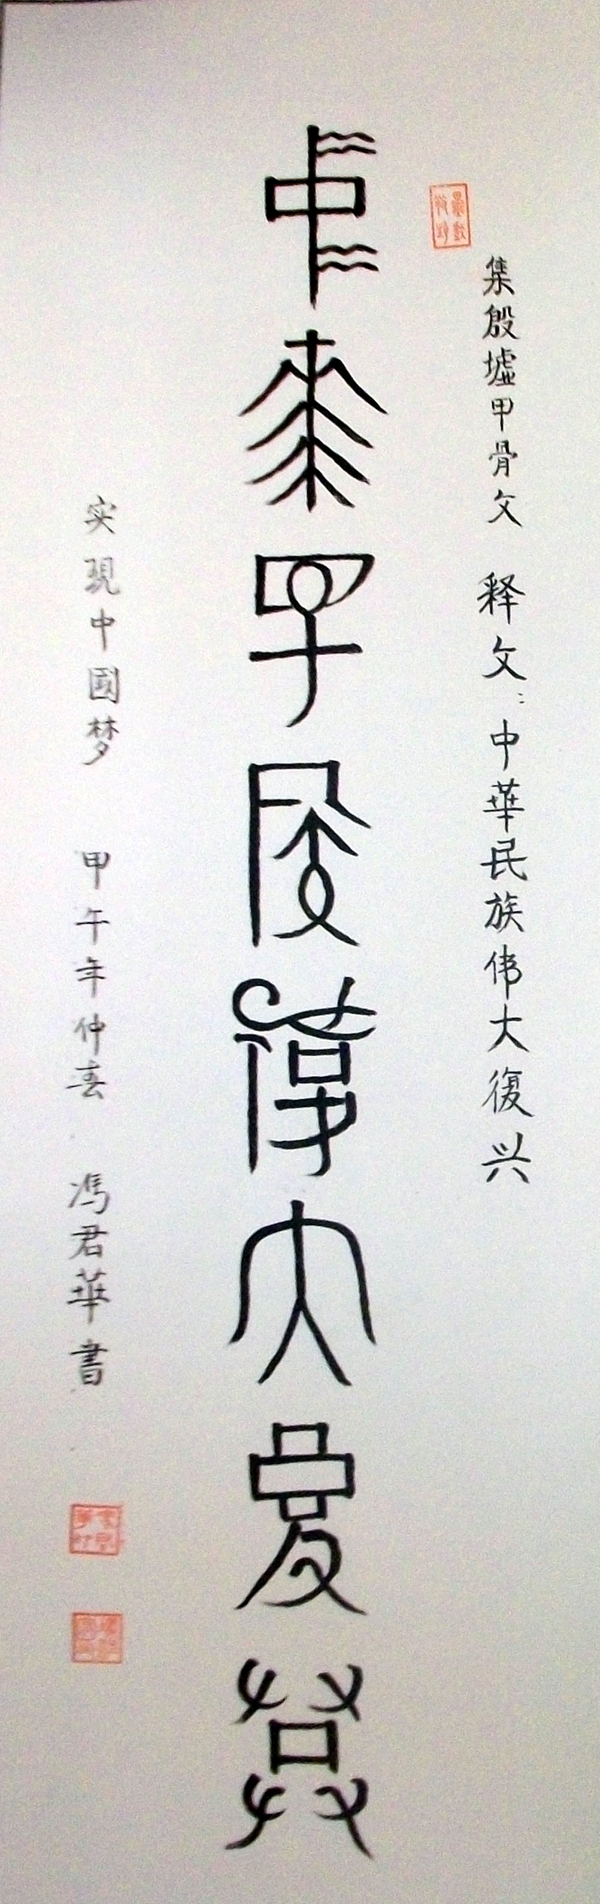 集殷墟甲骨文 释文：中華民族伟大復兴
中華民族伟大復兴
实现中國梦 甲午年仲春 馮君華書